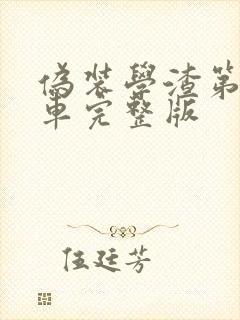 偽裝學渣第
車完整版
伍廷芳